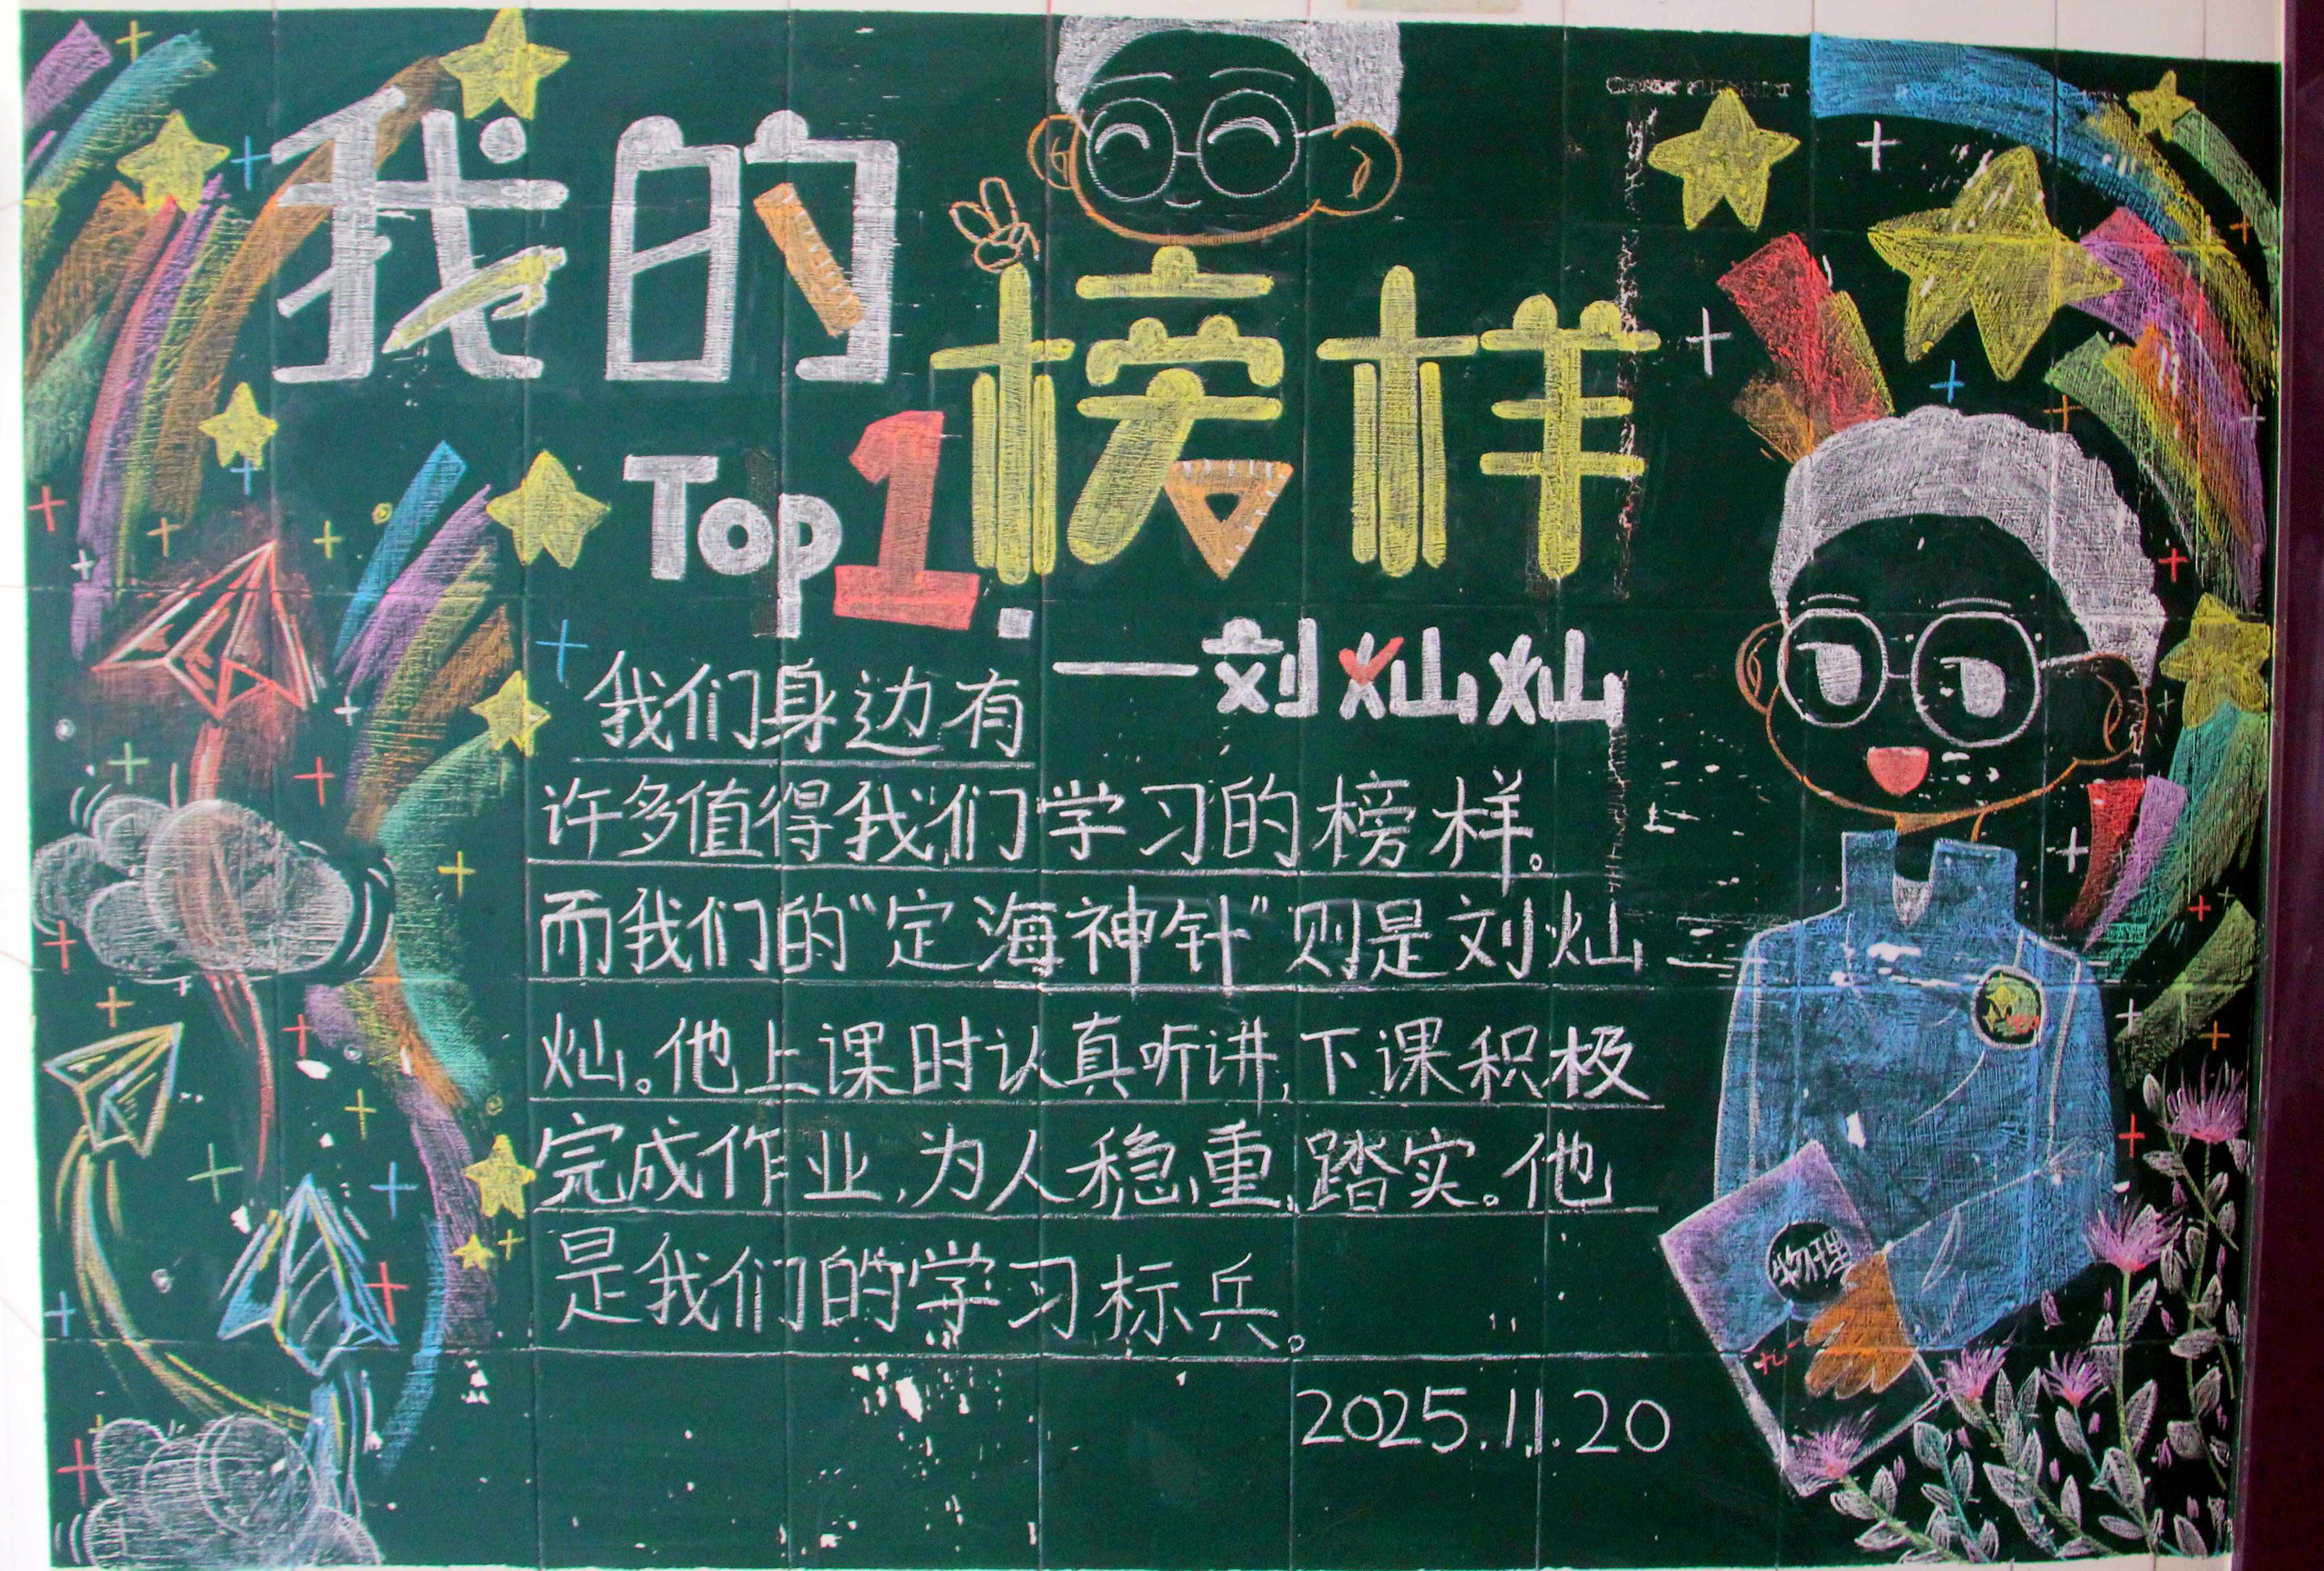 我的
榜样
Top 1.
—刘灿灿
我们身边有
许多值得我们学习的榜样。
而我们的“定海神针”则是刘灿
灿。他上课时认真听讲,下课积极
完成作业,为人稳重,踏实。他
是我们的学习标兵。
2025.11.20
物理